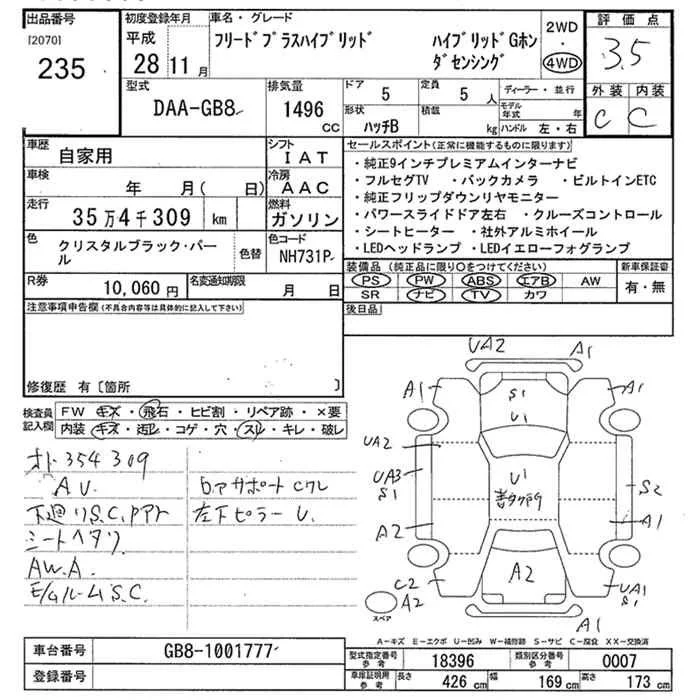 出品番号
[2070]
235
初度登録年月
平成
28 11 月
車名・グレード
フリードプラスハイブリッド ハイブリッドGホンダセンシング
2WD
・
4WD
評価点
3.5
外装 内装
C C
型式
DAA-GB8
排気量
1496
CC
ドア
5
定員
5 人
形状
ハッチB
積載
kg
ディーラー・並行
モデル年式 年
ハンドル 左・右
車歴
自家用
シフト
IAT
車検
年 月( 日)
冷房
AAC
走行
35万4千309 km
燃料
ガソリン
色
クリスタルブラック・パール
色替
色コード
NH731P
R券
10,060 円
名変通知期限
月 日
セールスポイント(正常に機能するものに限ります)
・純正9インチプレミアムインターナビ
・フルセグTV ・バックカメラ ・ビルトインETC
・純正フリップダウンリヤモニター
・パワースライドドア左右 ・クルーズコントロール
・シートヒーター ・社外アルミホイール
・LEDヘッドランプ ・LEDイエローフォグランプ
装備品 (純正品に限り○をつけてください)
新車保証書
PS PW ABS エアB AW
SR ナビ TV カワ
有・無
後日品
注意事項申告欄(不具合内容等は具体的に記入して下さい)
修復歴 有〔箇所 〕
検査員記入欄
FW キズ・飛石・ヒビ割・リペア跡・×要
内装 キズ・汚レ・コゲ・穴・スレ・キレ・破レ
メト354309
AU.
下廻りS.C.Pアト
シートヘタリ
AW.A.
E/gルームS.C.
左下ピラーU.
UA2 A1
A1 S1 U1 A1
UA2
UA3
S1
U1
S2
A2 A1
C2
A2
A2
UA1
S1
A1
スペア
A-キズ E-エクボ U-凹み W-補修跡 S-サビ C-腐食 XX-交換済
車台番号
GB8-1001777
登録番号
型式指定番号
参考
18396
類別区分番号
参考
0007
車庫証明用
参考
長さ 426 cm 幅 169 cm 高さ 173 cm